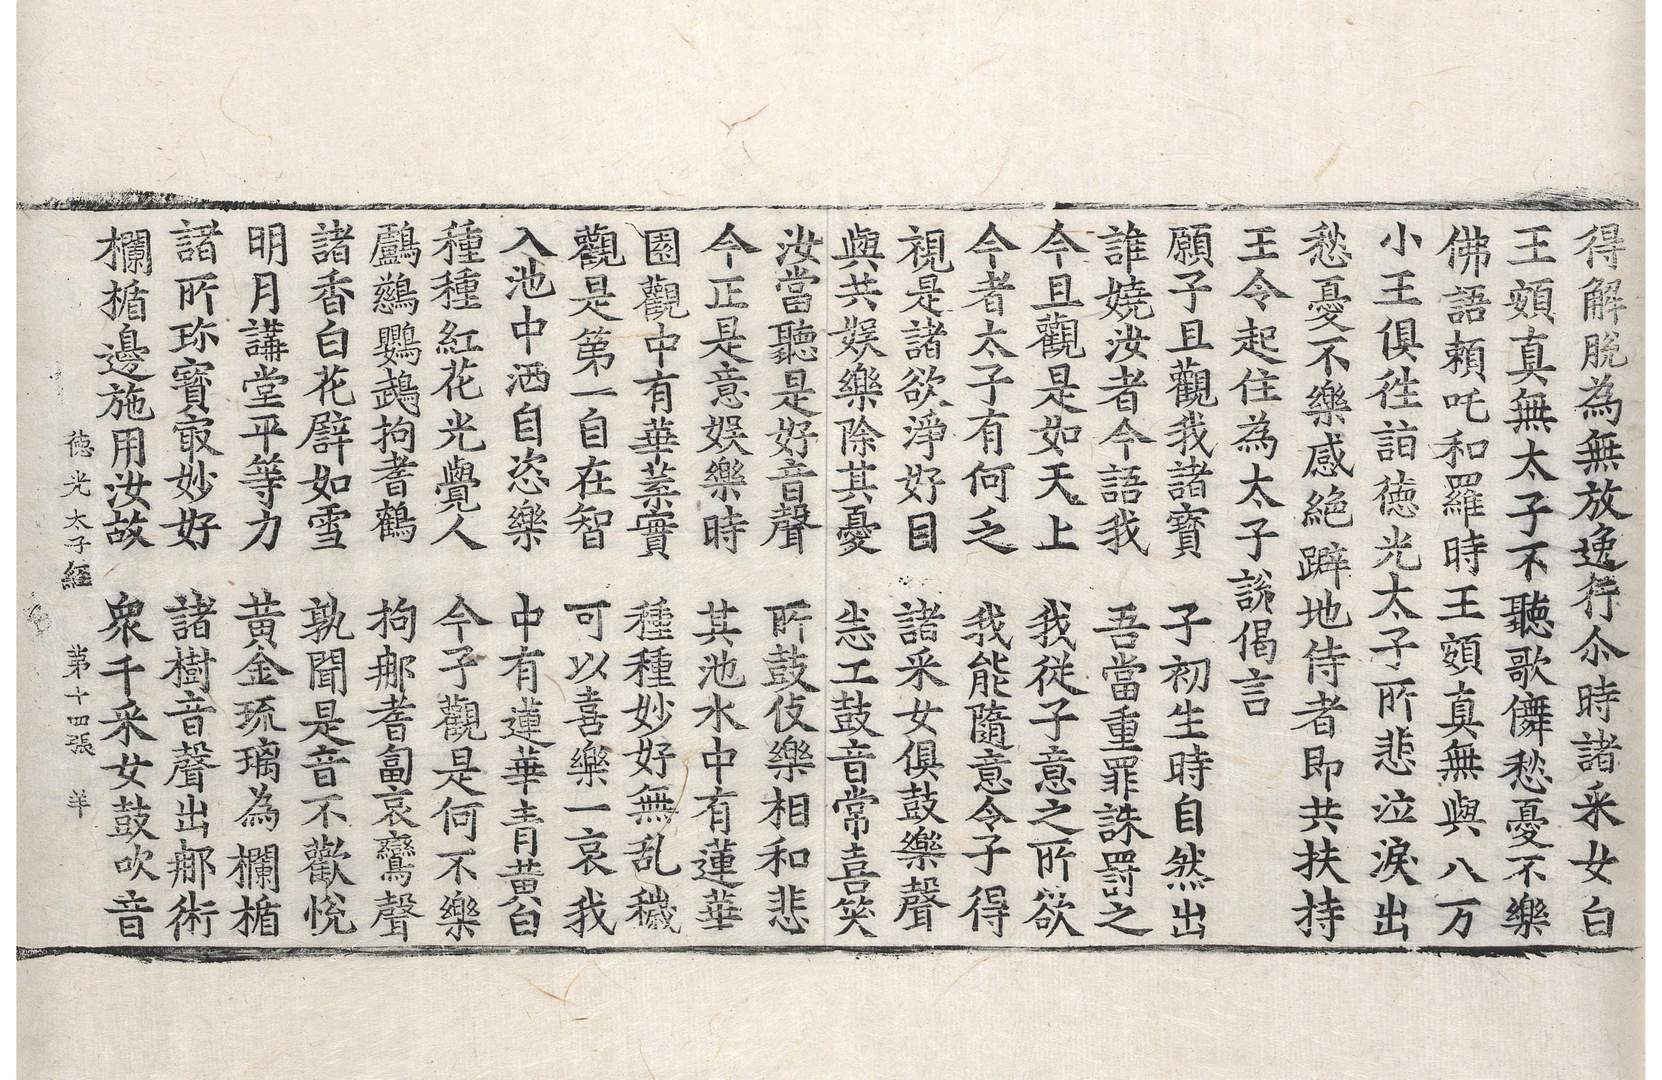 得解脫為無放逸行尒時諸采女白
王頞真無太子不聽歌儛愁憂不樂
佛語賴吒和羅時王頞真無與八万
小王俱徃詣德光太子所悲泣淚出
愁憂不樂感絕躃地侍者即共扶持
王令起住為太子說偈言
願子且觀我諸寶　子初生時自然出
誰嬈汝者今語我　吾當重罪誅罸之
今且觀是如天上　我從子意之所欲
今者太子有何乏　我能隨意令子得
視是諸欲淨好目　諸采女俱鼓樂聲
與共娛樂除其憂　恙工鼓音常喜笑
汝當聽是好音聲　所鼓伎樂相和悲
今正是意娛樂時　其池水中有蓮華
園觀中有華菓實　種種妙好無乱穢
觀是第一自在智　可以喜樂一哀我
入池中洒自恣樂　中有蓮華青黃白
種種紅花光覺人　今子觀是何不樂
鸕鷀鸚鵡拘耆鶴　拘那耆匐哀鸞聲
諸香白花譬如雪　孰聞是音不歡悅
明月講堂平等力　黃金琉璃為欄楯
諸所珎寶㝡妙好　諸樹音聲出那術
欄楯邊施用汝故　衆千采女鼓吹音
德光太子經　第十四張　羊